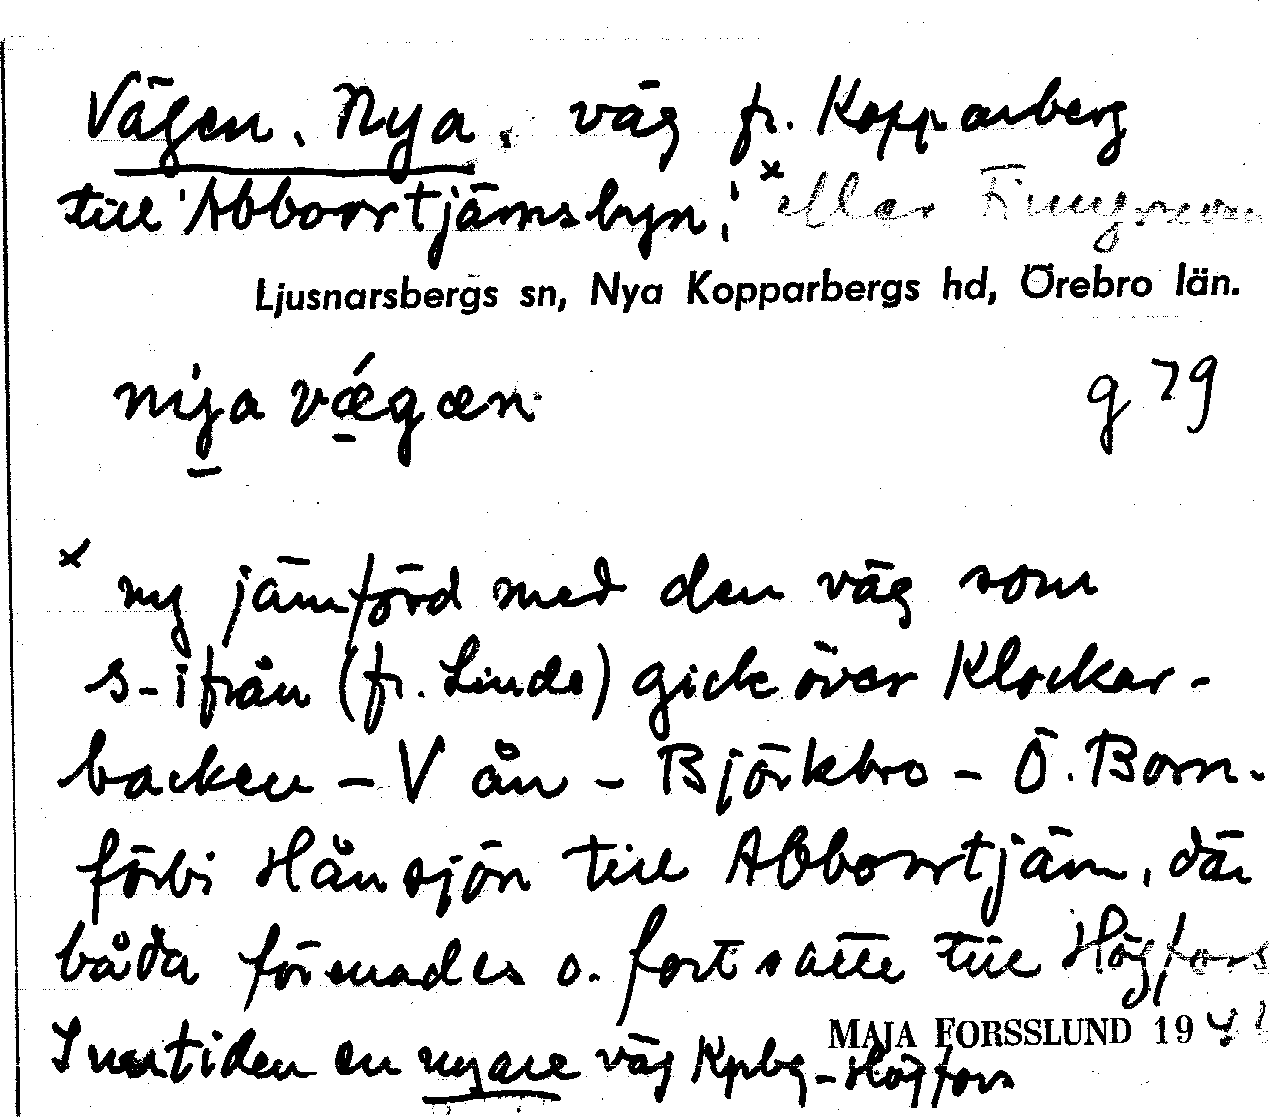 Vägen, Nya, väg fr. Kopparberg
till 'Abborrtjärnsbyn'. x eller
Ljusnarsbergs sn, Nya Kopparbergs hd, Örebro län.
nya vǽgæn g 79
x ny jämförd med den väg som
s-ifrån (fr. Linde) gick över Klockar-
backen – V ån – Björkbro – Ö. Born-
förbi Hånsjön till Abborrtjärn, där
båda förenades o. fortsatte till Högfors
MAJA FORSSLUND 194
I nutiden en nyare väg Kpbg – Högfors